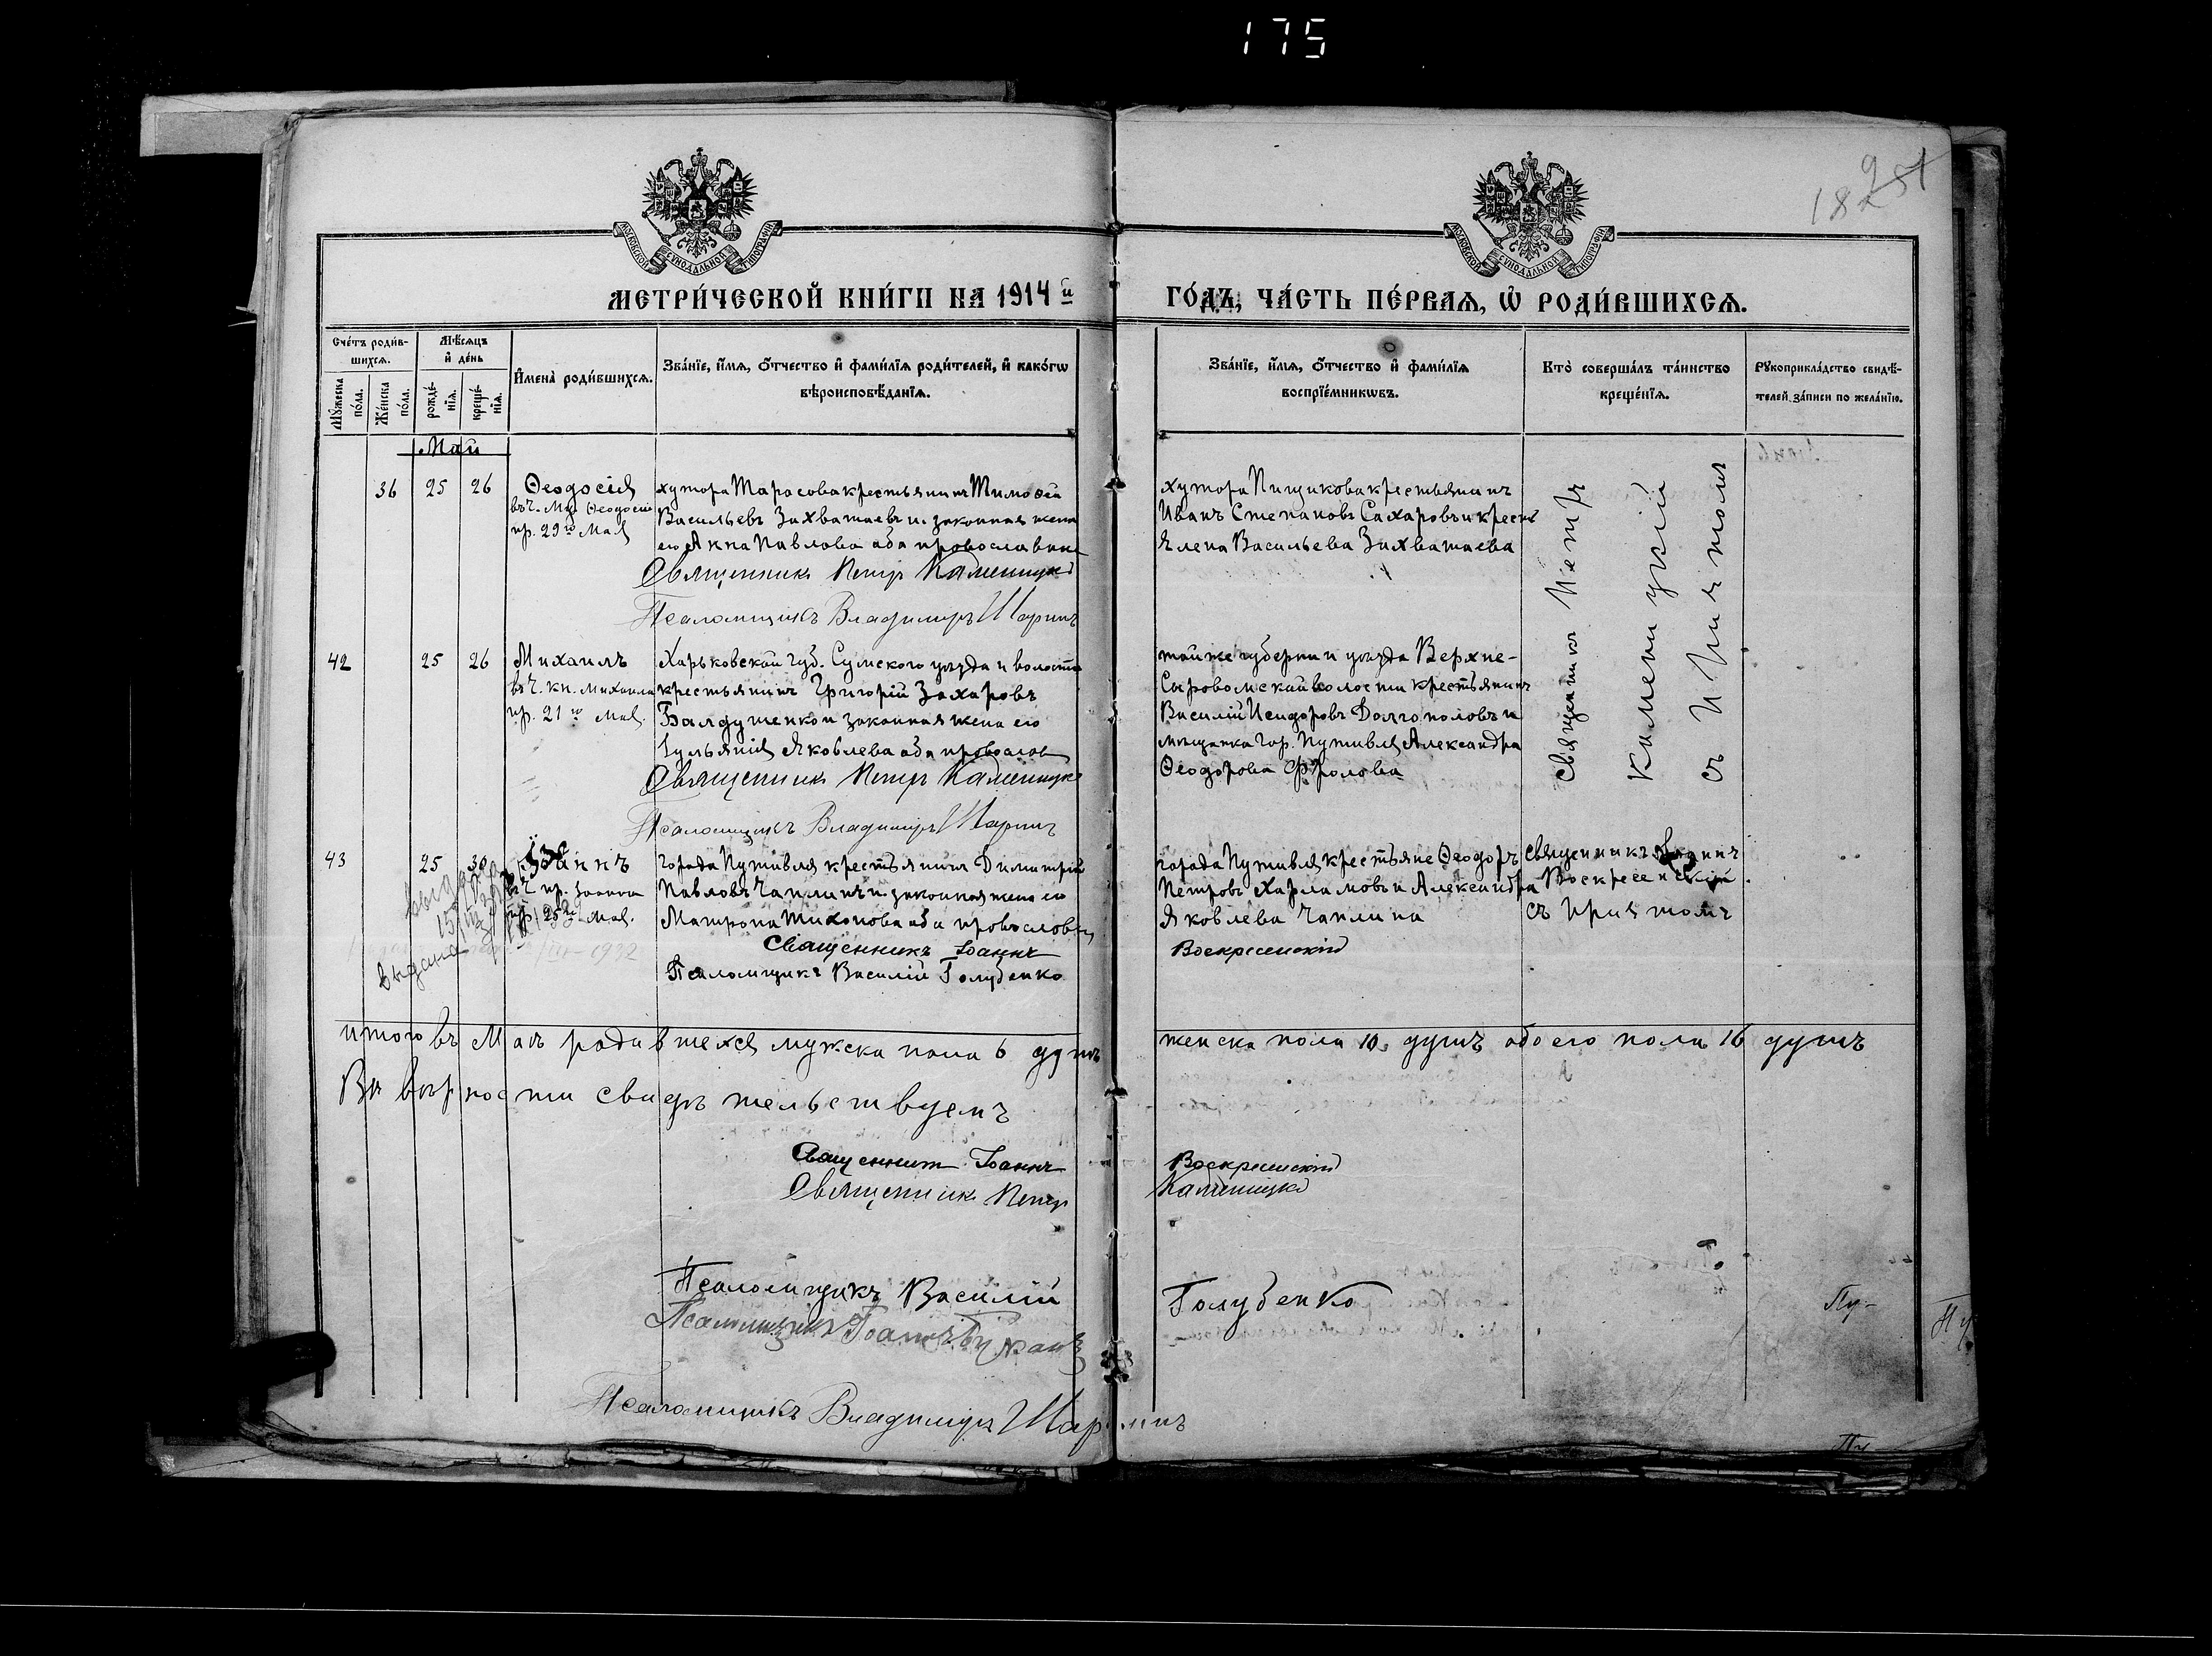 175
18 251
МОСКОВСКОЙ СѴНОДАЛЬНОЙ ТИПОГРАФІИ
МОСКОВСКОЙ СѴНОДАЛЬНОЙ ТИПОГРАФІИ
МЕТРИ́ЧЕСКОЙ КНИ́ГИ НА 1914 й
ГО́ДЪ, ЧА́СТЬ ПЕ́РВАѦ, Ѡ҆ РОДИ́ВШИХСѦ.
Сче́тъ роди́в-
шихсѧ.
Мꙋ́жеска по́ла.
Же́нска по́ла.
Мѣ́сѧцъ
и҆ де́нь
рожде́-нїѧ.
креще́-нїѧ.
И҆мена̀ роди́вшихсѧ.
Зва́нїе, и҆́мѧ, ѻ҆́тчество и҆ фами́лїѧ роди́телей, и҆ како́гѡ
вѣроисповѣ́данїѧ.
Зва́нїе, и҆́мѧ, ѻ҆́тчество и҆ фами́лїѧ
воспрїе́мникѡвъ.
Кто̀ соверша́лъ та́инство
креще́нїѧ.
Рꙋкоприкла́дство свидѣ́-
телей за́писи по жела́нїю.
Май
36 25 26 Ѳеодосія
въ ч. Му. Ѳеодосіи
пр. 29го Мая
хутора Тарасова крестьянинъ Тимоѳей
Васильевъ Захватаевъ и законная жена
его Анна Павлова оба православные
Священникъ Петръ Каменицкій
Псаломщикъ Владимиръ Шаринъ
хутора Пищикова крестьянинъ
Иванъ Степановъ Сахаровъ и крест.
Елена Васильева Захватаева
Священникъ Петръ
Каменицкій
съ Причтомъ
42 25 26 Михаилъ
въ ч. кн. Михаила
пр. 21го Мая.
Харьковской губ. Сумского уѣзда и волости
крестьянинъ Григорій Захаровъ
Балдуненко и законная жена его
Іульянія Яковлева оба правосл
Священникъ Петръ Каменицкій
Псаломщикъ Владимиръ Шаринъ
той же губерніи уѣзда Верхне-
Сыроватской волости крестьянинъ
Василій Исидоровъ Долгополовъ и
мѣщанка гор. Путивля Александра
Ѳеодорова Фролова
43 25 30 Іоаннъ
въ ч. пр. Іоанна
пр. 25го Мая.
Выдана
1932
города Путивля крестьянинъ Димитрій
Павловъ Чаплинъ и законная жена его
Матрона Тихонова оба православн
Священникъ Іоаннъ Воскресенскій
Псаломщикъ Василій Голубенко
города Путивля крестьяне Ѳеодоръ
Петровъ Харламовъ и Александра
Яковлева Чаплина
Священникъ Іоаннъ
Воскресенскій
съ Причтомъ
итого въ Маѣ родившехся мужска пола 6 душъ женска пола 10 душъ обоего пола 16 душъ
Въ вѣрности свидѣтельствуемъ
Священникъ Іоаннъ Воскресенскій
Священникъ Петръ Каменицкій
Псаломщикъ Василій Голубенко
Псаломщикъ Іоаннъ
Псаломщикъ Владимиръ Шаринъ
Пу-
Пу
Пу